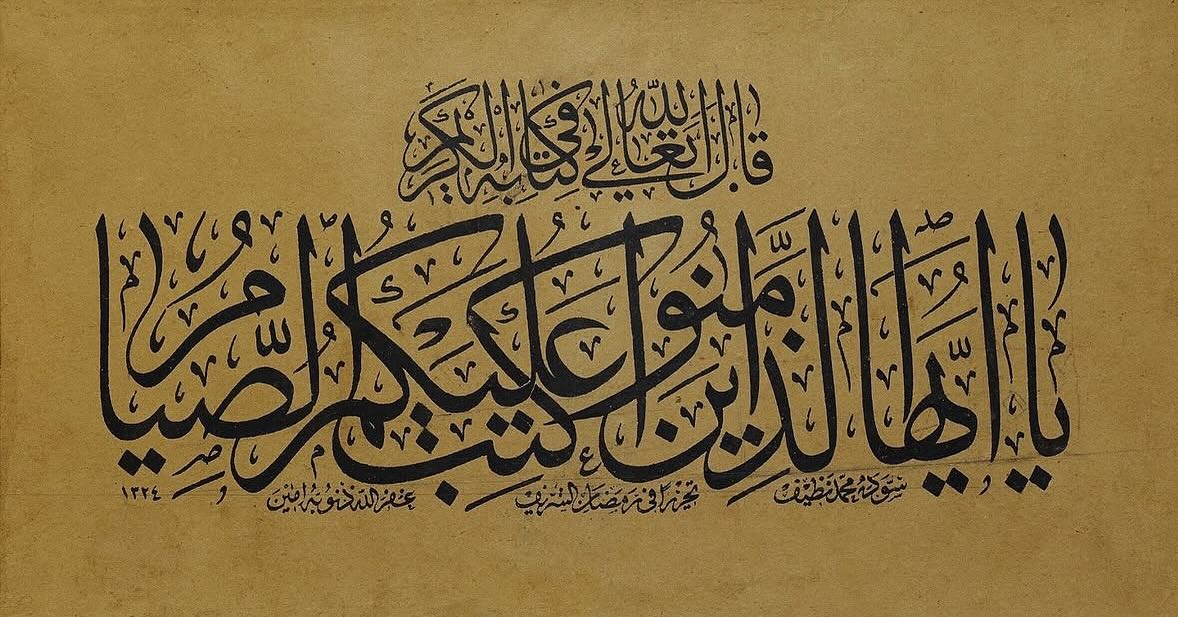 قال الله تعالى في كتابه الكريم
يا ايها الذين امنوا كتب عليكم الصيام
سوده محمد نظيف تحريرا في رمضان الشريف غفر الله ذنوبه امين ١٣٢٤